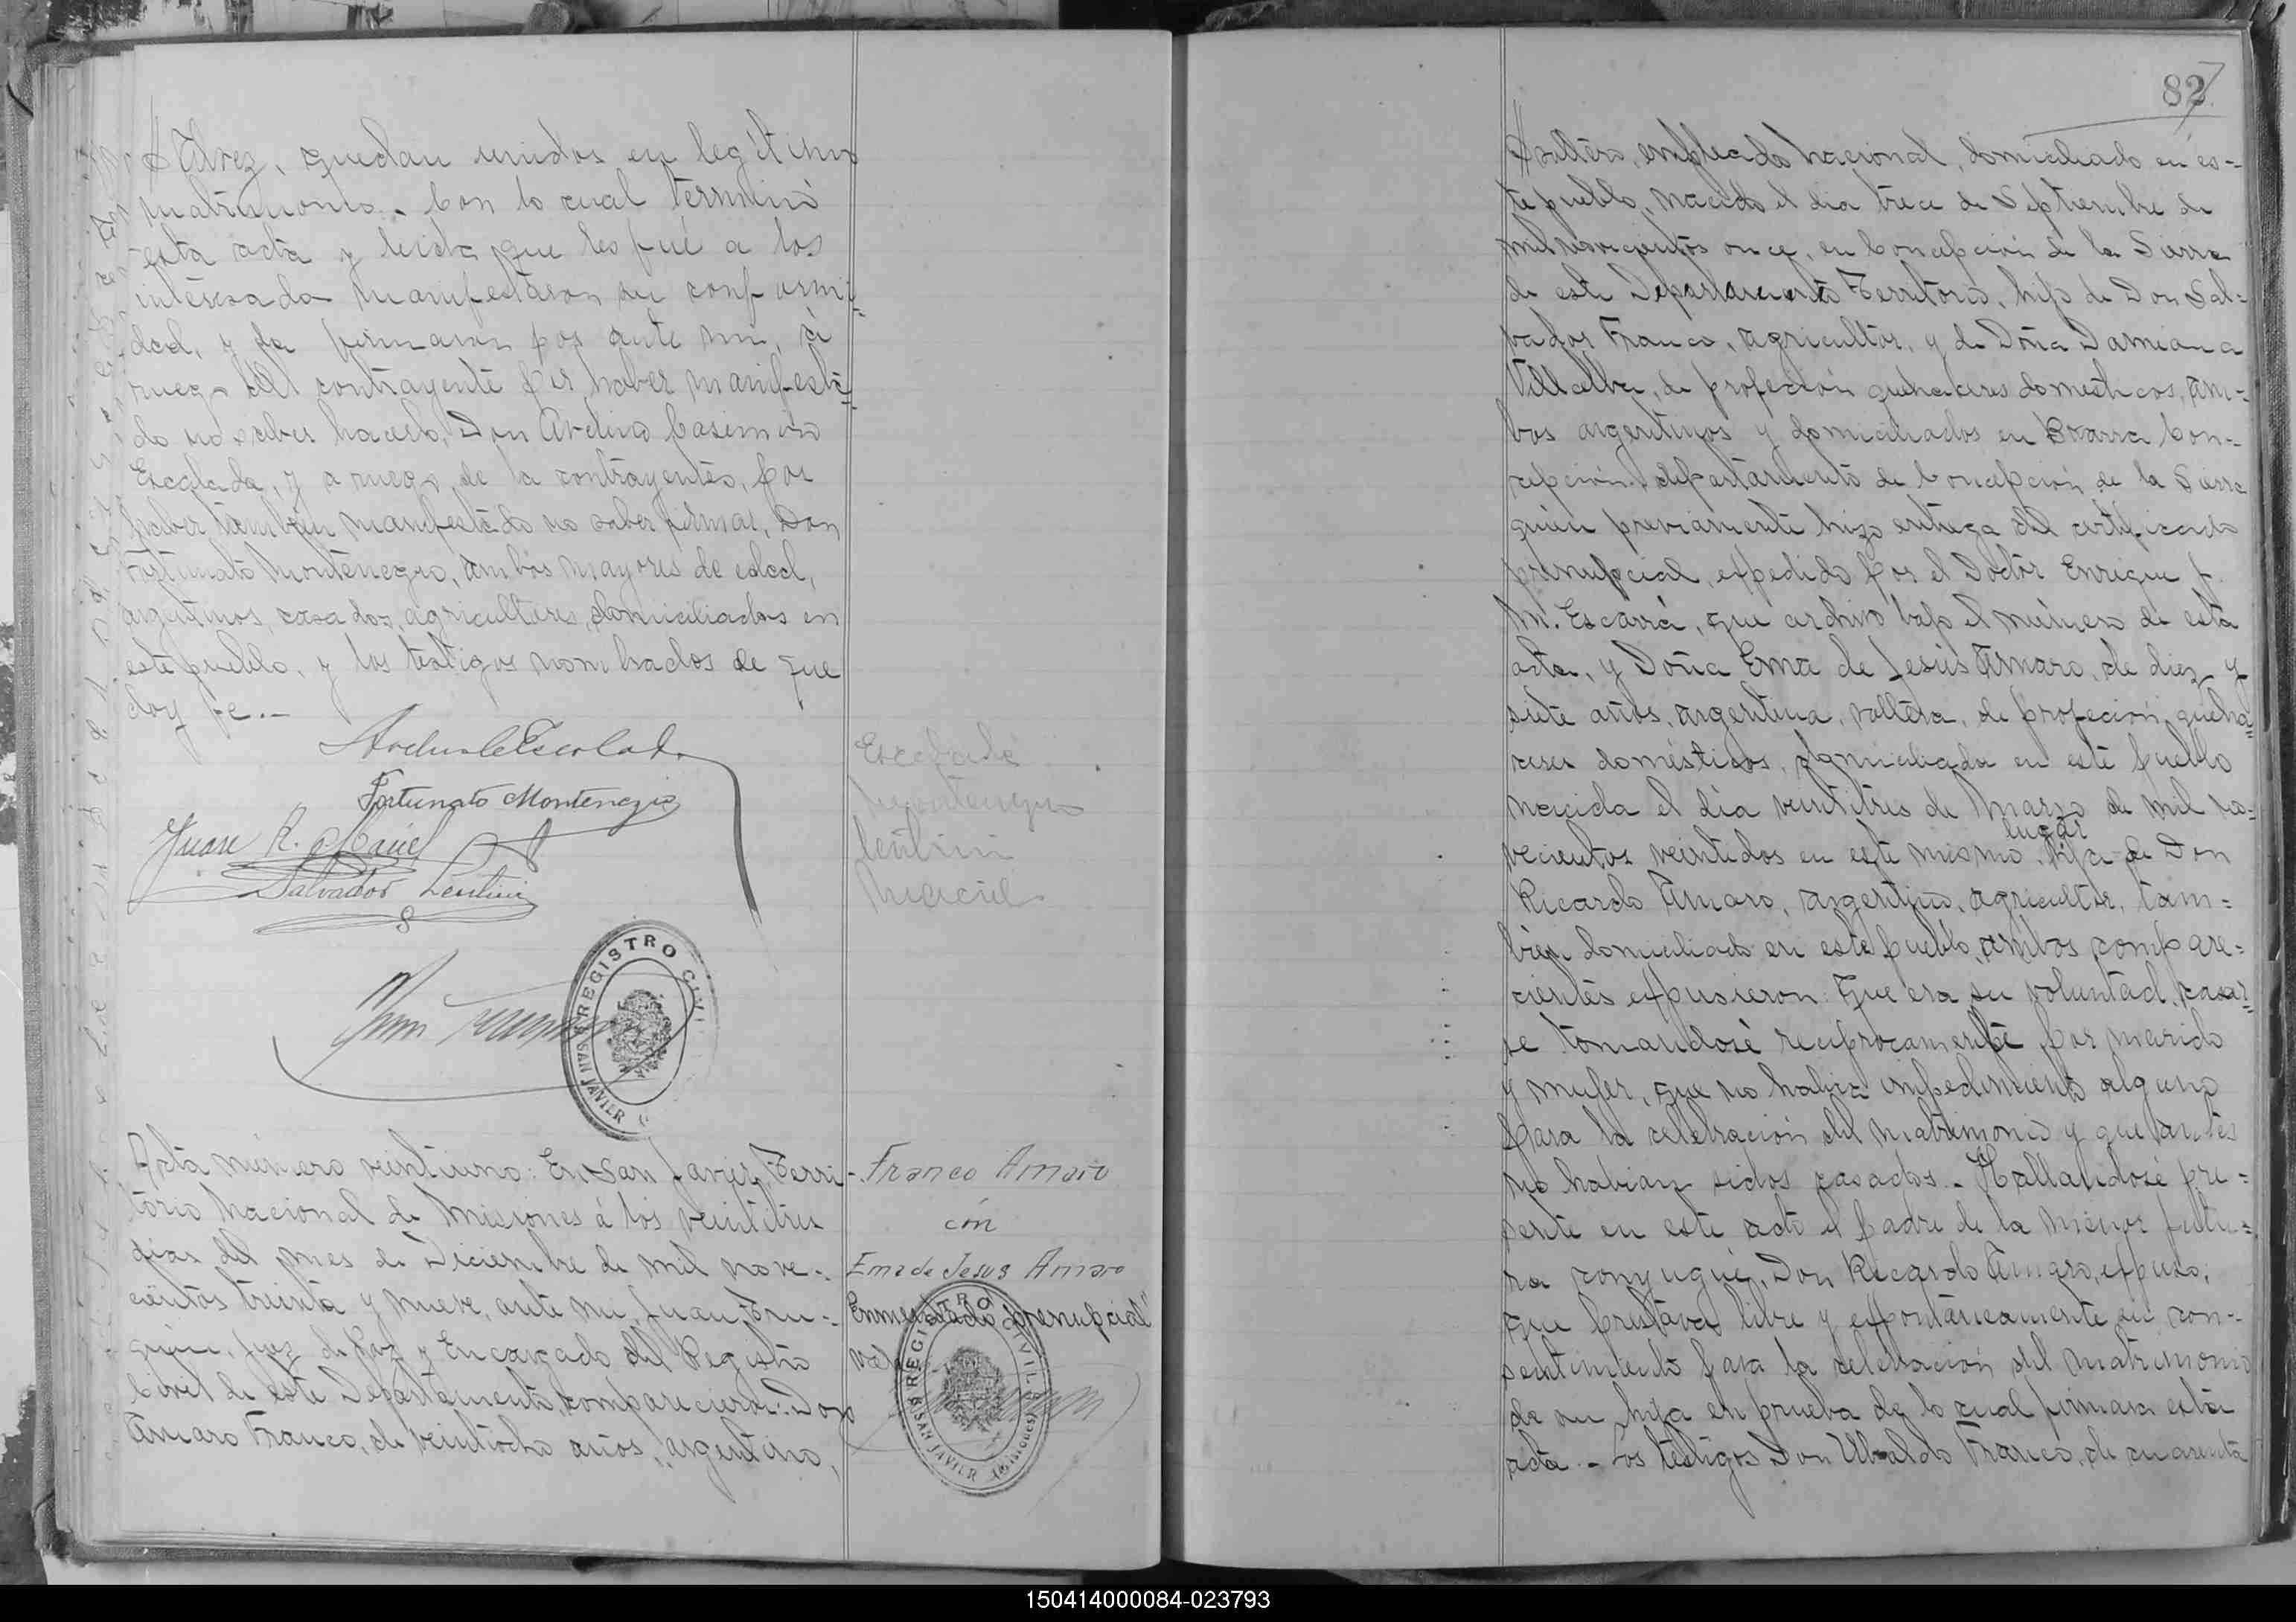 Alvez, quedan unidos en legítimo
matrimonio.- Con lo cual terminó
esta acta y leida que les fué a los
interesado manifestaron su conformi-
dad, y la firmaron por ante mí, á
ruego del contrayente por haber manifesta-
do no saber hacerlo, Don Avelino Casimiro
Escalada, y a ruego de la contrayentes, por
haber tambien manifestado no saber firmar, Don
Fortunato Montenegro, ambos mayores de edad,
argentinos, casados, agricultores, domiciliados en
este pueblo, y los testigos nombrados de que
doy fe.-
Fortunato Montenegro
Juan R.
Salvador Lentini
REGISTRO CIVIL
SAN JAVIER
Escalada
Montenegro
Lentini
Maciel
Acta número veintiuno: En San Javier, Terri-
torio Nacional de Misiones á los veintitres
dias del mes de Diciembre de mil nove-
cientos treinta y nueve, ante mi, Juan
Juez de Paz y Encargado del Registro
Civil de este Departamento, comparecieron: Don
Amaro Franco, de veintiocho años, argentino,
Franco Amaro
con
Ema de Jesus Amaro
Enmendado "prenupcial"
Vale
REGISTRO CIVIL
SAN JAVIER (Misiones)
82
soltero, empleado nacional, domiciliado en es-
te pueblo, nacido el dia trece de Septiembre de
mil novecientos once, en Concepción de la Sierra
de este Departamento Territorio, hijo de Don Sal-
vador Franco, agricultor, y de Doña Damiana
Villalba, de profeción quehaceres domesticos, am-
bos argentinos y domiciliados en Barra Con-
cepción, departamento de Concepción de la Sierra
quien previamente hizo entrega del certificado
prenupcial, expedido por el Doctor Enrique J.
M. Escarrá, que archivo bajo el número de esta
acta, y Doña Ema de Jesús Amaro, de diez y
siete años, argentina, soltera, de profeción queha-
ceres domésticos, domiciliada en este pueblo
nacida el día veintitres de Marzo de mil no-
vecientos veintidos en este mismo lugar hija de Don
Ricardo Amaro, argentino, agricultor, tam-
bien domiciliado en este pueblo, ambos compare-
cientes expusieron: Que era su voluntad, casar-
se tomandosé reciprocamente por marido
y mujer, que no habia impedimiento alguno
para la celebración del matrimonio y que antes
no habian sidos casados.- Hallandosé pre-
sente en este acto el padre de la menor futu-
ra conyugue, Don Ricardo Amaro, expuso;
que prestava libre y espontáneamente su con-
sentimiento para la celebración del matrimonio
de su hija en prueba de lo cual firmara esta
acta.- Los testigos Don Ubaldo Franco, de cuarenta
150414000084-023793